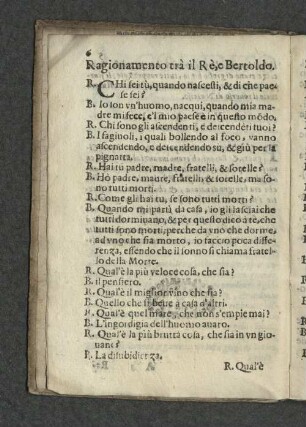 6
Ragionamento trà il Rè, e Bertoldo.
R. CHi sei tù, quando nascesti, & di che pae-
se sei?
B. Io son vn'huomo, nacqui, quando mia ma
dre mi fece, e'l mio paese è in questo módo,
R. Chi sono gli ascendenti, e descendéti tuoi?
B. I fagiuoli, i quali bollendo al foco, vanno
ascendendo, e descendendo su, & giù per la
pignatta.
R. Hai tù padre, madre, fratelli, & sorelle?
B. Hò padre, madre, fratelli, & sorelle, ma so-
no tutti morti.
R. Come gli hai tu, se sono tutti morti?
B. Quando mi partì da casa, io gli lasciai che
tutti dormiuano, & per questo dico à te, che
tutti sono morti, perche da vno che dorme,
ad vno che sia morto, io faccio poca diffe-
renza, essendo che il sonno si chiama fratel-
lo della Morte.
R. Qual'è la più veloce cosa, che sia?
B. il pensiero.
R. Qual'è il miglior vino che sia?
B. Quello che si beue à casa d'altri.
R. Qual'è quel mare, che non s'empie mai?
B. L'ingordigia dell'huomo auaro.
R. Qual'è la più brutta cosa, che sia in vn gi-
ouane?
B. La disubidienza.
R. Qual'è